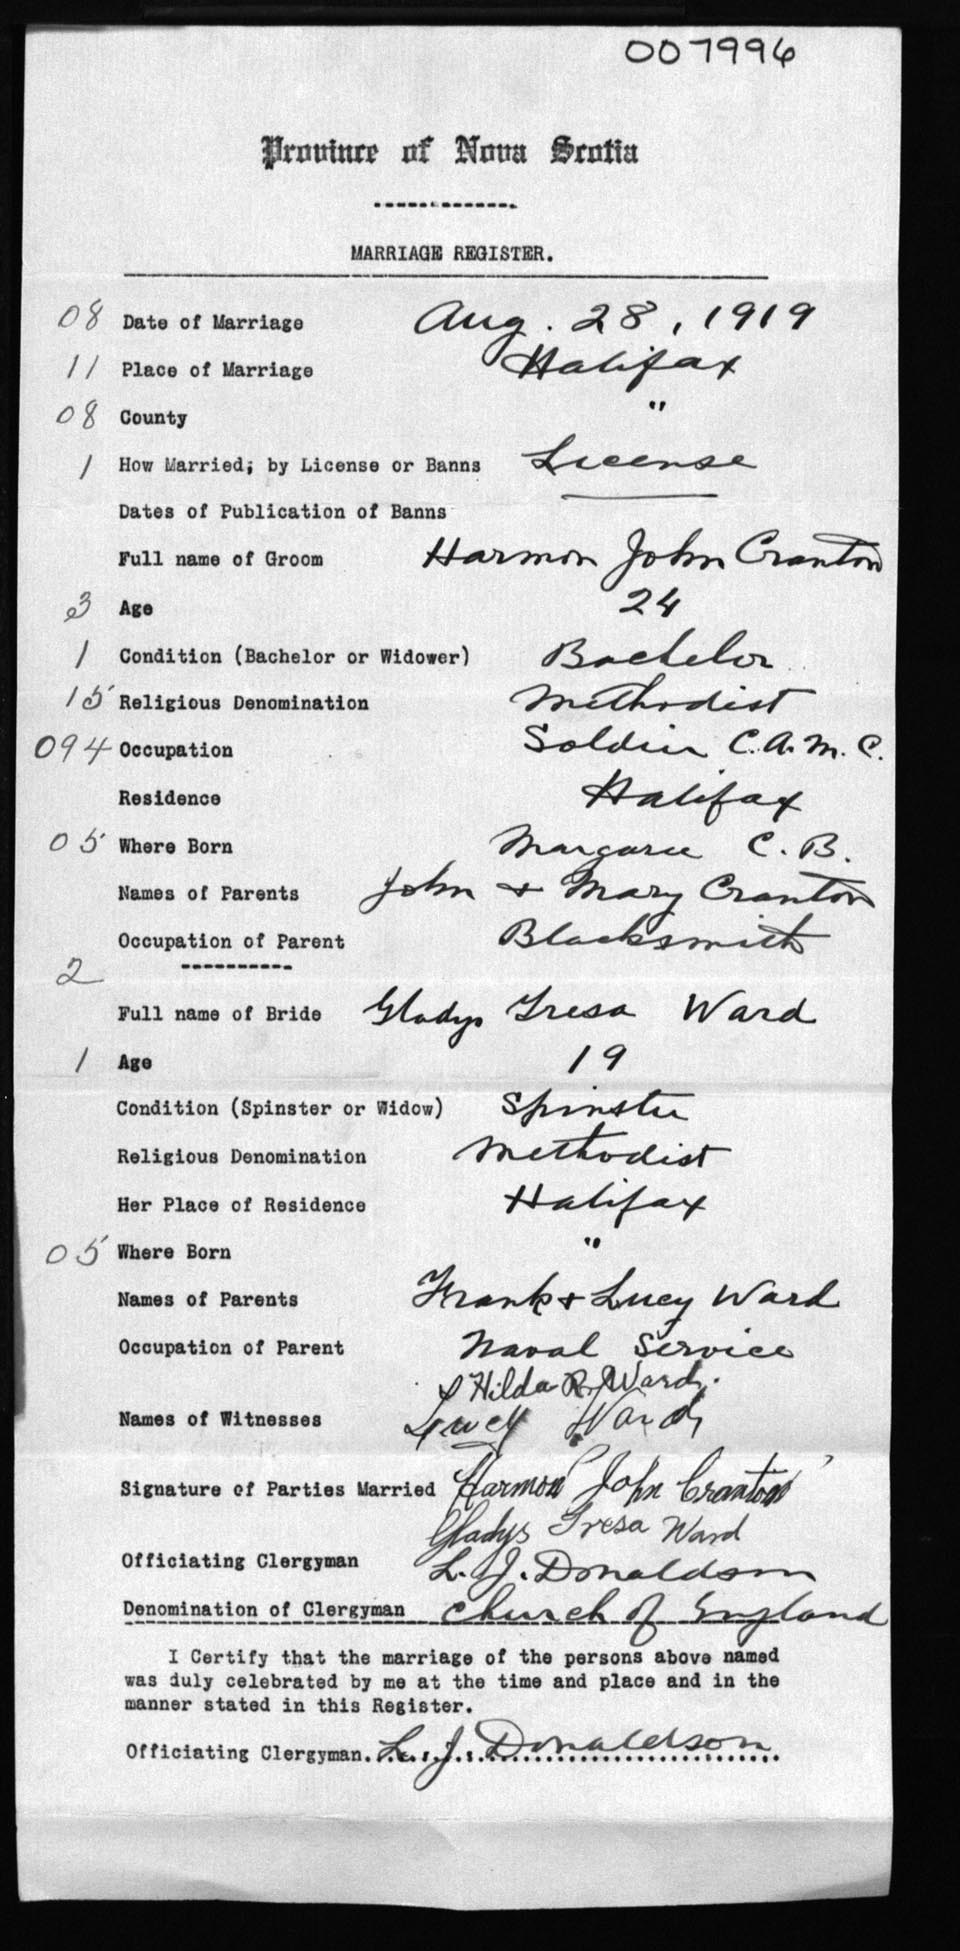 007996
Province of Nova Scotia
MARRIAGE REGISTER.
08 Date of Marriage Aug. 28, 1919
11 Place of Marriage Halifax
08 County "
1 How Married; by License or Banns License
Dates of Publication of Banns
Full name of Groom Harmon John Cranton
3 Age 24
1 Condition (Bachelor or Widower) Bachelor
15 Religious Denomination Methodist
094 Occupation Soldier C.A.M.C.
Residence Halifax
05 Where Born Margaree C.B.
Names of Parents John + Mary Cranton
Occupation of Parent Blacksmith
2
Full name of Bride Gladys Tresa Ward
1 Age 19
Condition (Spinster or Widow) Spinster
Religious Denomination Methodist
Her Place of Residence Halifax
05 Where Born "
Names of Parents Frank + Lucy Ward
Occupation of Parent Naval Service
Hilda R. Ward.
Names of Witnesses Lucy Ward
Signature of Parties Married Harmon John Cranton
Gladys Tresa Ward
Officiating Clergyman L. J. Donaldson
Denomination of Clergyman Church of England
I Certify that the marriage of the persons above named
was duly celebrated by me at the time and place and in the
manner stated in this Register.
Officiating Clergyman. L. J. Donaldson